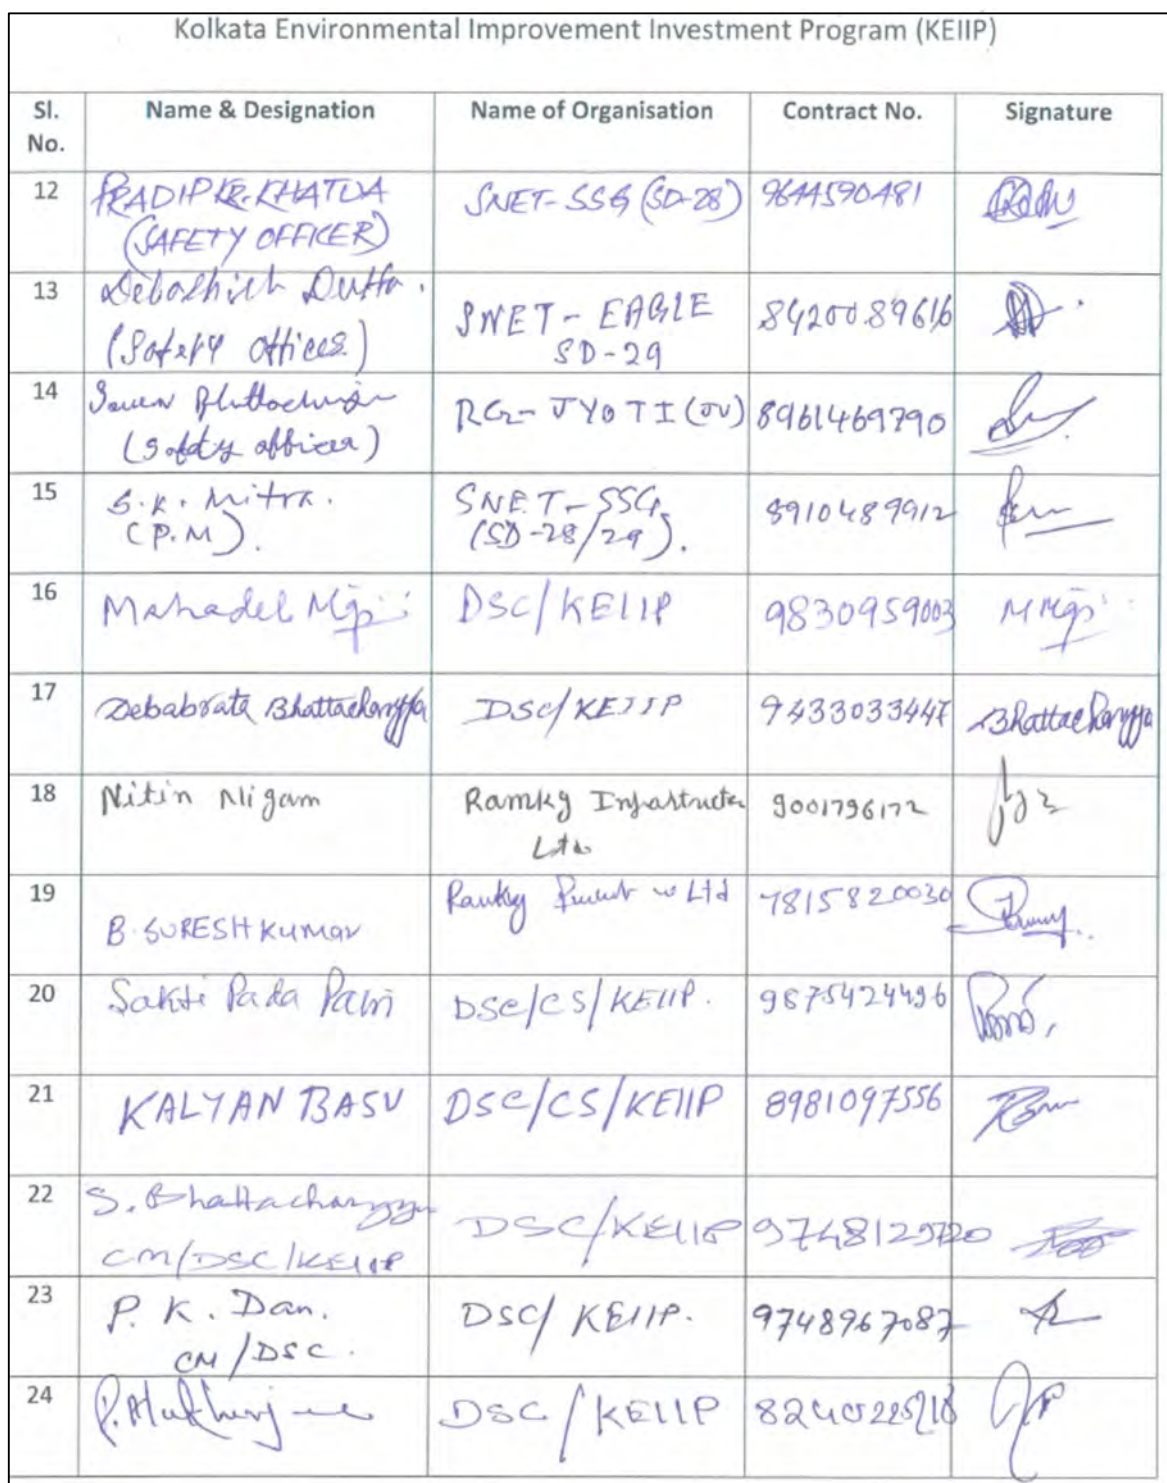 Kolkata Environmental Improvement Investment Program (KEIIP)
Sl. No. Name & Designation Name of Organisation Contract No. Signature
12 PRADIP KR. KHATUA (SAFETY OFFICER) SNET-SSG (SD-28) 9644590481
13 Debashish Dutta. (Safety Officer) SNET - EAGLE SD-29 8420089616
14 (Safety officer) RG-JYOTI (JV) 8961469790
15 S.K. Mitra. (P.M). SNET-SSG (SD-28/29). 8910489912
16 DSC/KEIIP 9830959003
17 Debabrata Bhattacharyya DSC/KEIIP 9433033447 Bhattacharyya
18 Nitin Nigam Ramky Infrastructure Ltd 9001796172
19 B. SURESH Kumar Ramky Ltd 7815820030
20 Sakti Pada DSC/CS/KEIIP. 9875424496
21 KALYAN BASU DSC/CS/KEIIP 8981097556
22 S. Bhattacharyya CM/DSC/KEIIP DSC/KEIIP
23 P. K. Dan. CM/DSC. DSC/KEIIP. 9748967087
24 P. Mukherjee DSC/KEIIP